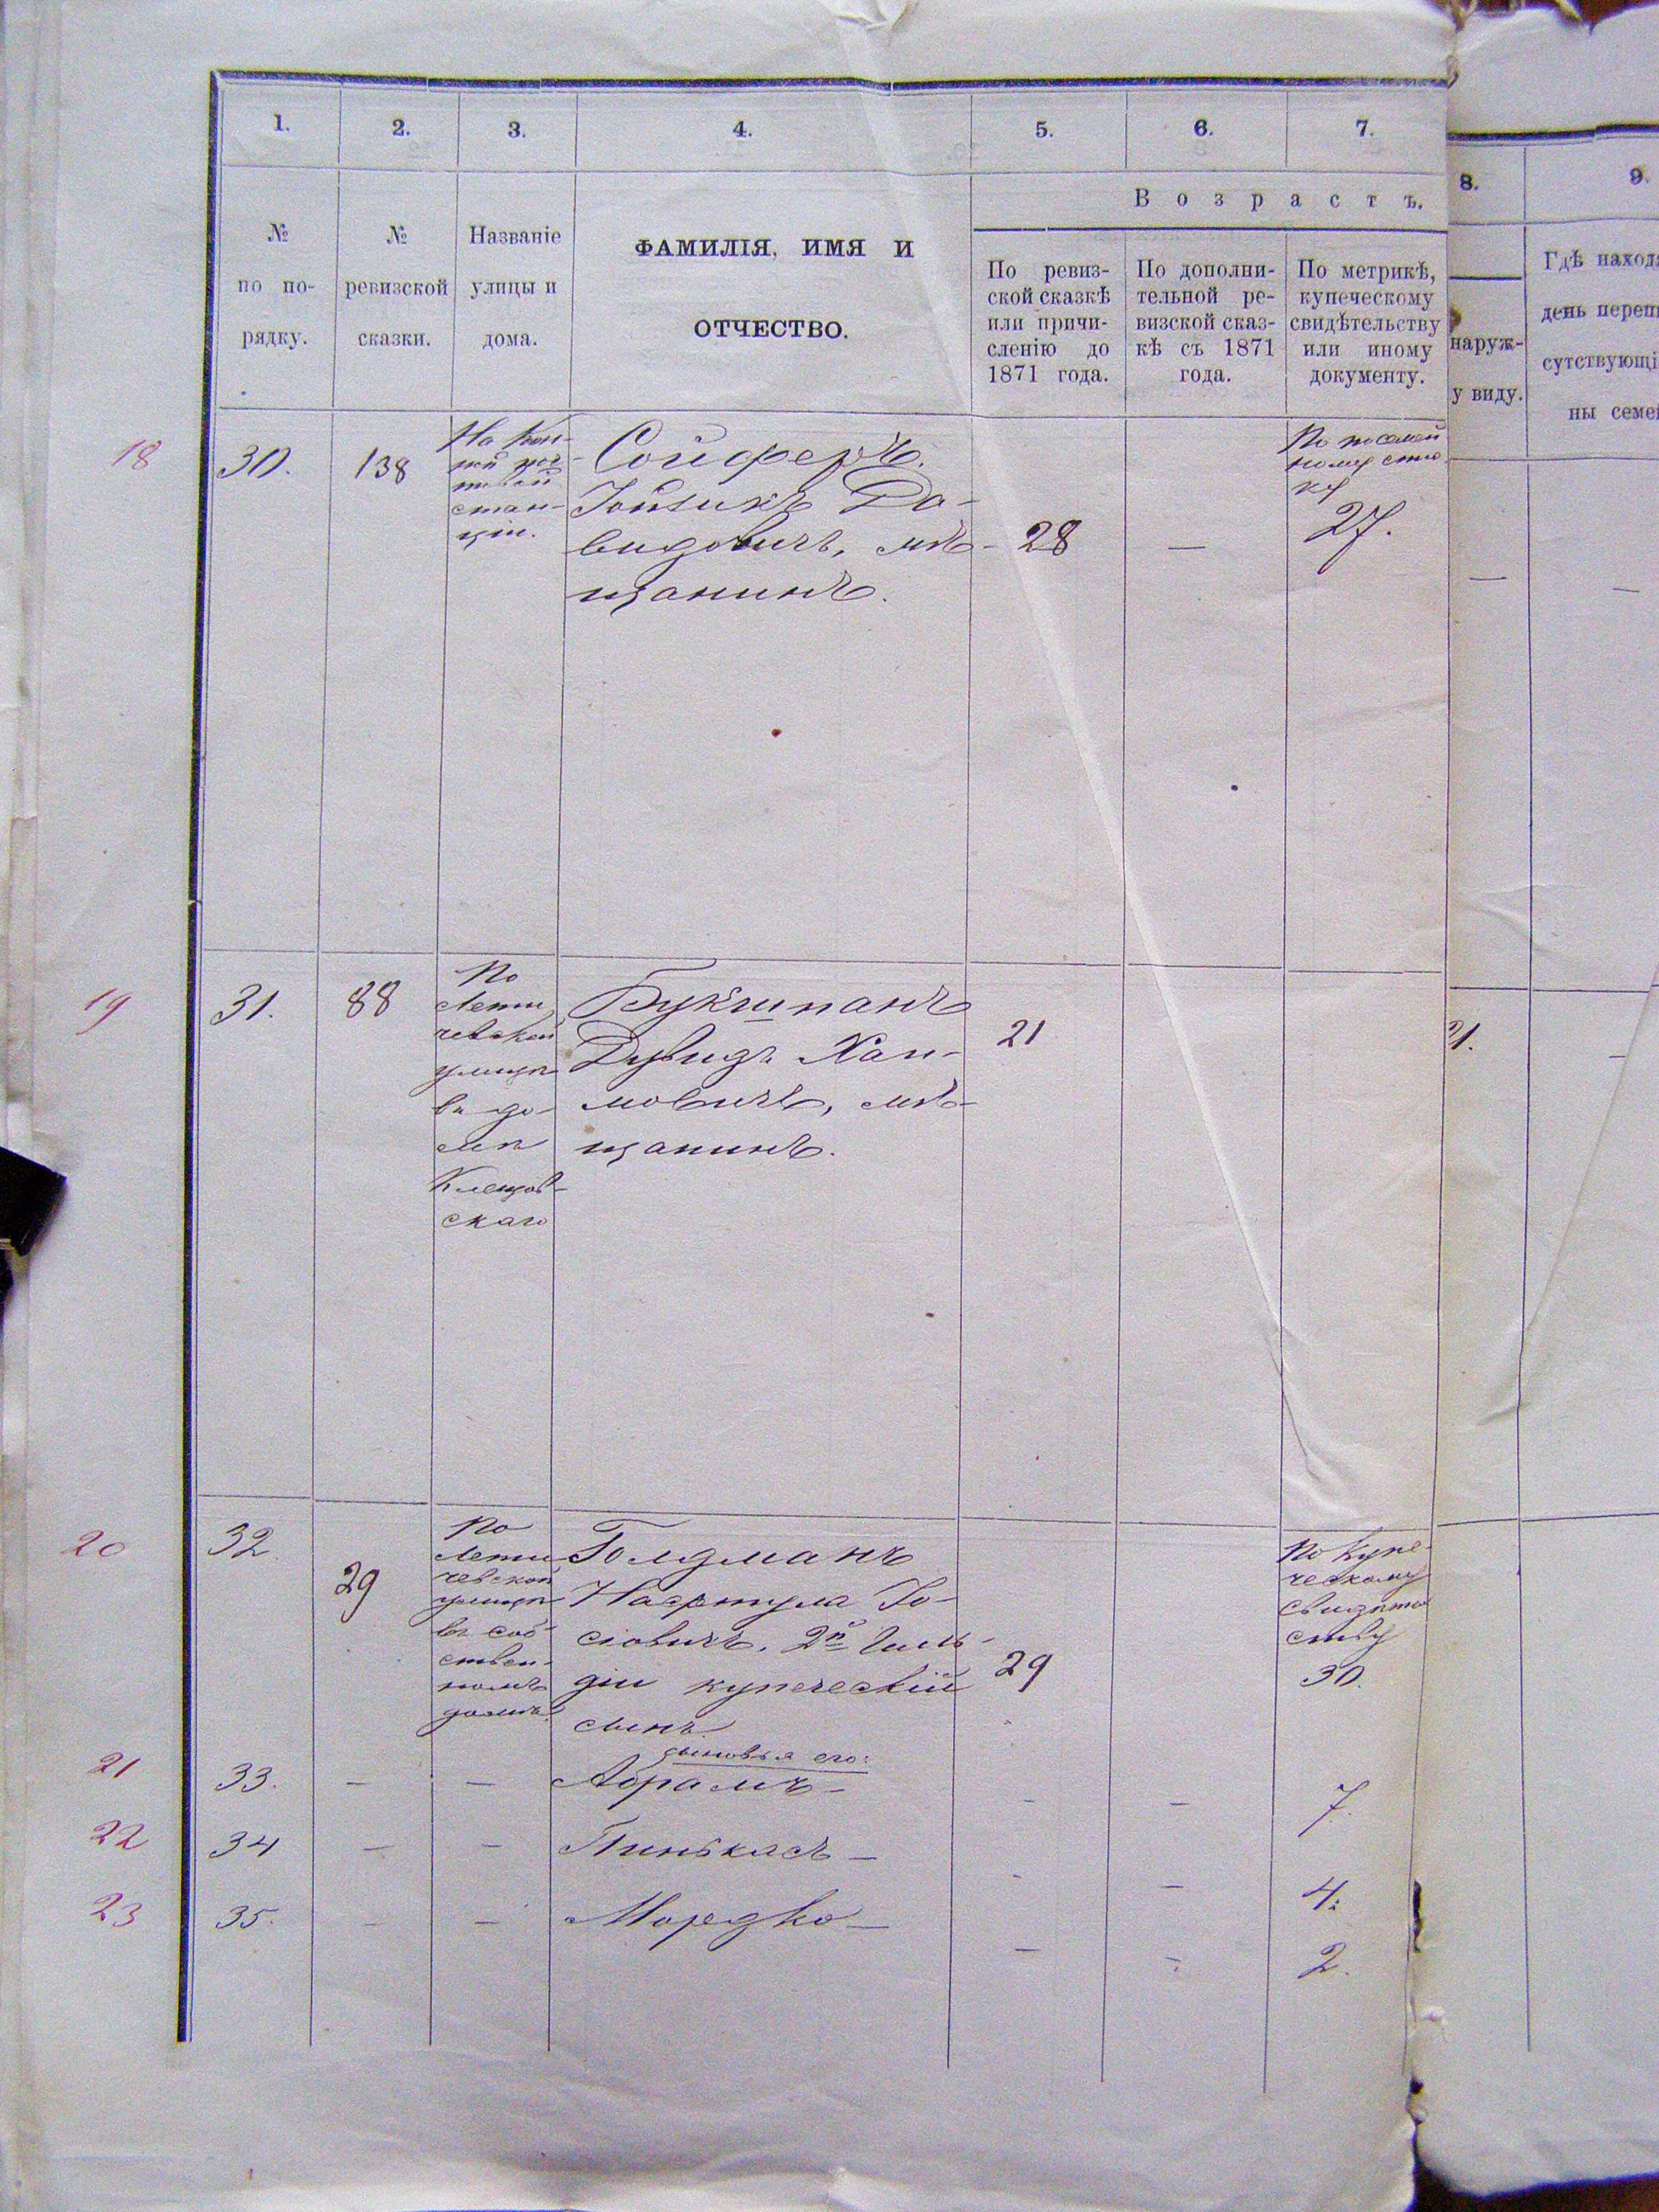 1.
2.
3.
4.
5.
6.
7.
8.
9.
Возрастъ.
№
по по-
рядку.
№
ревизской
сказки.
Названіе
улицы и
дома.
ФАМИЛІЯ, ИМЯ И
ОТЧЕСТВО.
По ревиз-
ской сказкѣ
или причи-
сленію до
1871 года.
По дополни-
тельной ре-
визской сказ-
кѣ съ 1871
года.
По метрикѣ,
купеческому
свидѣтельству
или иному
документу.
наруж-
у виду.
Гдѣ наход
день переп
сутствующі
ны семе
18
30.
138
На Кон-
стан-
ціи.
Сойферъ
Давидовичъ, мѣ-
щанинъ.
28
—
По
27.
—
—
19
31.
88
По
Лети
чевской
улицѣ
въ до-
мѣ
скаго
Букшпанъ
Дувидъ Хаи-
мовичъ, мѣ-
щанинъ.
21
21.
—
20
32
29
По
Лети
чевской
улицѣ
въ соб-
ствен-
номъ
домѣ.
Голдманъ
Іо-
сіовичъ, 2й Гиль-
діи купеческій
сынъ
29
По купе-
ческому
свидѣтель
ству
30.
сыновья его:
21
33.
—
—
Абрамъ —
—
—
7.
22
34
—
—
Пинькасъ —
-
—
4.
23
35.
—
—
Мордко —
—
-
2.